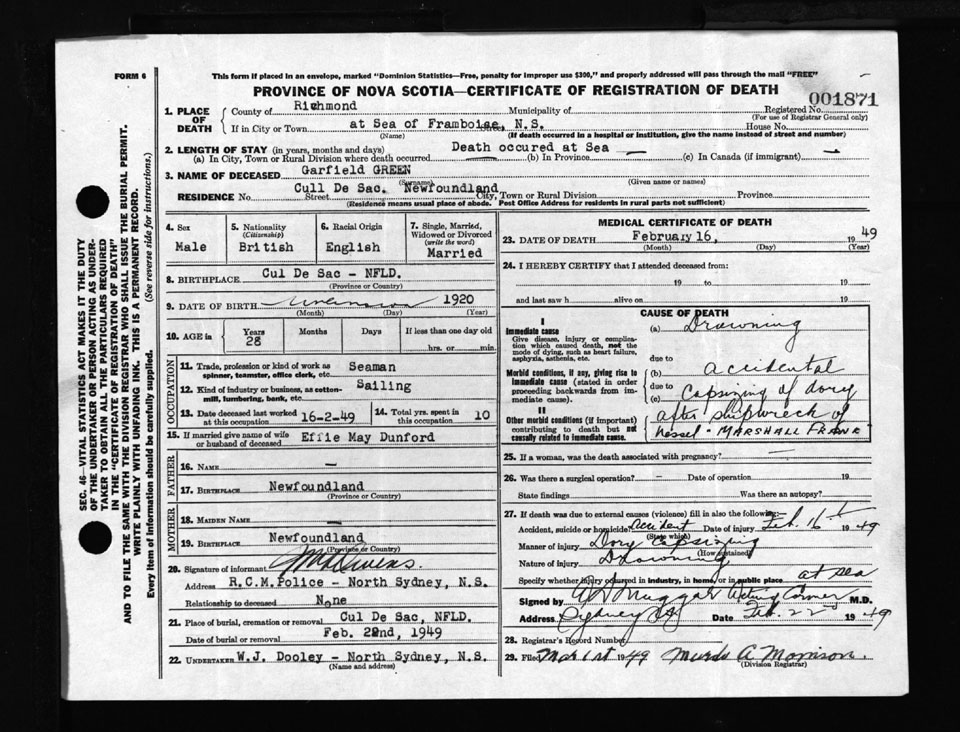 FORM 6
This form if placed in an envelope, marked "Dominion Statistics—Free, penalty for improper use $300," and properly addressed will pass through the mail "FREE"
PROVINCE OF NOVA SCOTIA—CERTIFICATE OF REGISTRATION OF DEATH
001871
1. PLACE OF DEATH
County of Richmond Municipality of Registered No.
(For use of Registrar General only)
If in City or Town at Sea of Framboise, N.S. House No.
(Name) (If death occurred in a hospital or institution, give the name instead of street and number)
2. LENGTH OF STAY (in years, months and days) Death occured at Sea
(a) In City, Town or Rural Division where death occurred — (b) In Province — (c) In Canada (if immigrant) —
3. NAME OF DECEASED Garfield GREEN
(Surname) (Given name or names)
RESIDENCE No. Cull De Sac. Newfoundland
Street City, Town or Rural Division Province
(Residence means usual place of abode. Post Office Address for residents in rural parts not sufficient)
4. Sex
Male
5. Nationality
(Citizenship)
British
6. Racial Origin
English
7. Single, Married, Widowed or Divorced
(write the word)
Married
8. BIRTHPLACE Cul De Sac - NFLD.
(Province or Country)
9. DATE OF BIRTH unknown 1920
(Month) (Day) (Year)
10. AGE in
Years Months Days If less than one day old
28
hrs. or min.
OCCUPATION
11. Trade, profession or kind of work as spinner, teamster, office clerk, etc. Seaman
12. Kind of industry or business, as cotton-mill, lumbering, bank, etc. Sailing
13. Date deceased last worked at this occupation 16-2-49
14. Total yrs. spent in this occupation 10
15. If married give name of wife or husband of deceased Effie May Dunford
FATHER
16. NAME —
17. BIRTHPLACE Newfoundland
(Province or Country)
MOTHER
18. MAIDEN NAME —
19. BIRTHPLACE Newfoundland
(Province or Country)
20. Signature of informant
Address R.C.M.Police - North Sydney, N.S.
Relationship to deceased None
21. Place of burial, cremation or removal Cul De Sac, NFLD.
Date of burial or removal Feb. 22nd, 1949
22. UNDERTAKER W.J. Dooley - North Sydney, N.S.
(Name and address)
MEDICAL CERTIFICATE OF DEATH
23. DATE OF DEATH February 16, 1949
(Month) (Day) (Year)
24. I HEREBY CERTIFY that I attended deceased from:
19 to 19
and last saw h alive on 19
CAUSE OF DEATH
I
Immediate cause
Give disease, injury or complication which caused death, not the mode of dying, such as heart failure, asphyxia, asthenia, etc.
(a) Drowning
due to
Morbid conditions, if any, giving rise to immediate cause (stated in order proceeding backwards from immediate cause).
(b) accidental
due to
(c) Capsizing of dory
after shipwreck of
vessel - MARSHALL FRANK
II
Other morbid conditions (if important) contributing to death but not causally related to immediate cause.
25. If a woman, was the death associated with pregnancy? —
26. Was there a surgical operation? — Date of operation 19
State findings Was there an autopsy?
27. If death was due to external causes (violence) fill in also the following:
Accident, suicide or homicide Accident Date of injury Feb. 16 1949
(State which)
Manner of injury Dory capsizing
(How sustained)
Nature of injury Drowning
Specify whether injury occurred in industry, in home, or in public place at sea
Signed by Acting Coroner M.D.
Address Sydney NS Date Feb. 22 1949
28. Registrar's Record Number
29. Filed Mar 1st 1949 Murdo A Morrison.
(Division Registrar)
SEC. 46—VITAL STATISTICS ACT MAKES IT THE DUTY
OF THE UNDERTAKER OR PERSON ACTING AS UNDER-
TAKER TO OBTAIN ALL THE PARTICULARS REQUIRED
IN THE "CERTIFICATE OF REGISTRATION OF DEATH"
AND TO FILE THE SAME WITH THE DIVISION REGISTRAR WHO SHALL ISSUE THE BURIAL PERMIT.
WRITE PLAINLY WITH UNFADING INK. THIS IS A PERMANENT RECORD.
Every item of information should be carefully supplied. (See reverse side for instructions.)